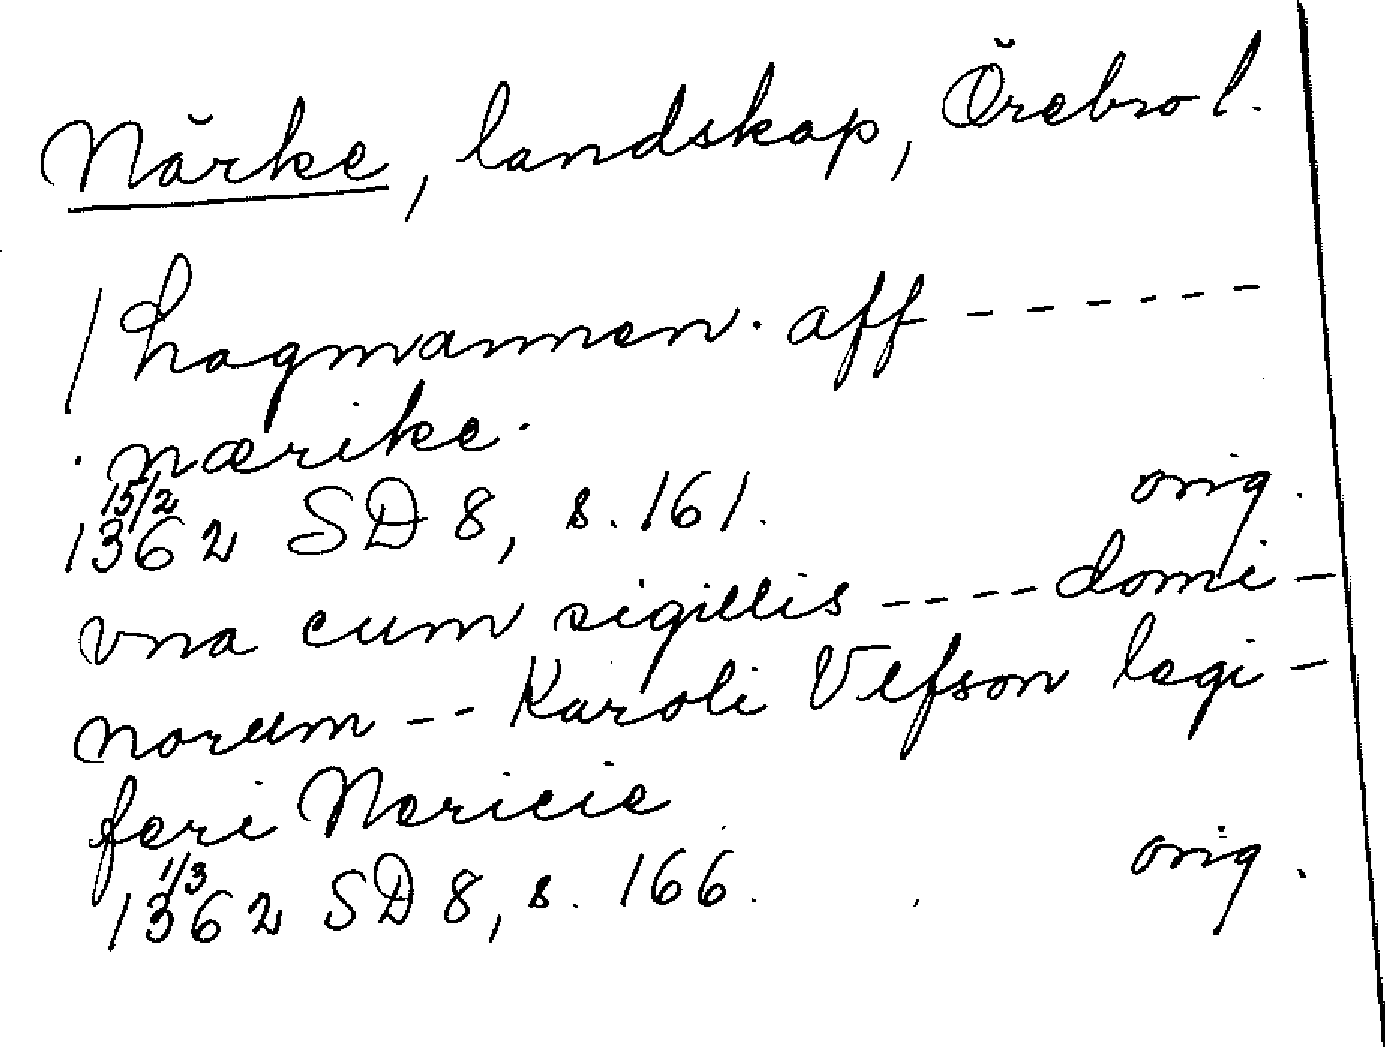 Närke, landskap, Örebro l.
/ Lagmannen. aff ------
. nærike.
15/2
1362 SD 8, s. 161. orig.
vna cum sigillis ---- domi-
norum --- Karoli Vlfson legi-
feri Nericie
1/3
1362 SD 8, s. 166. orig.